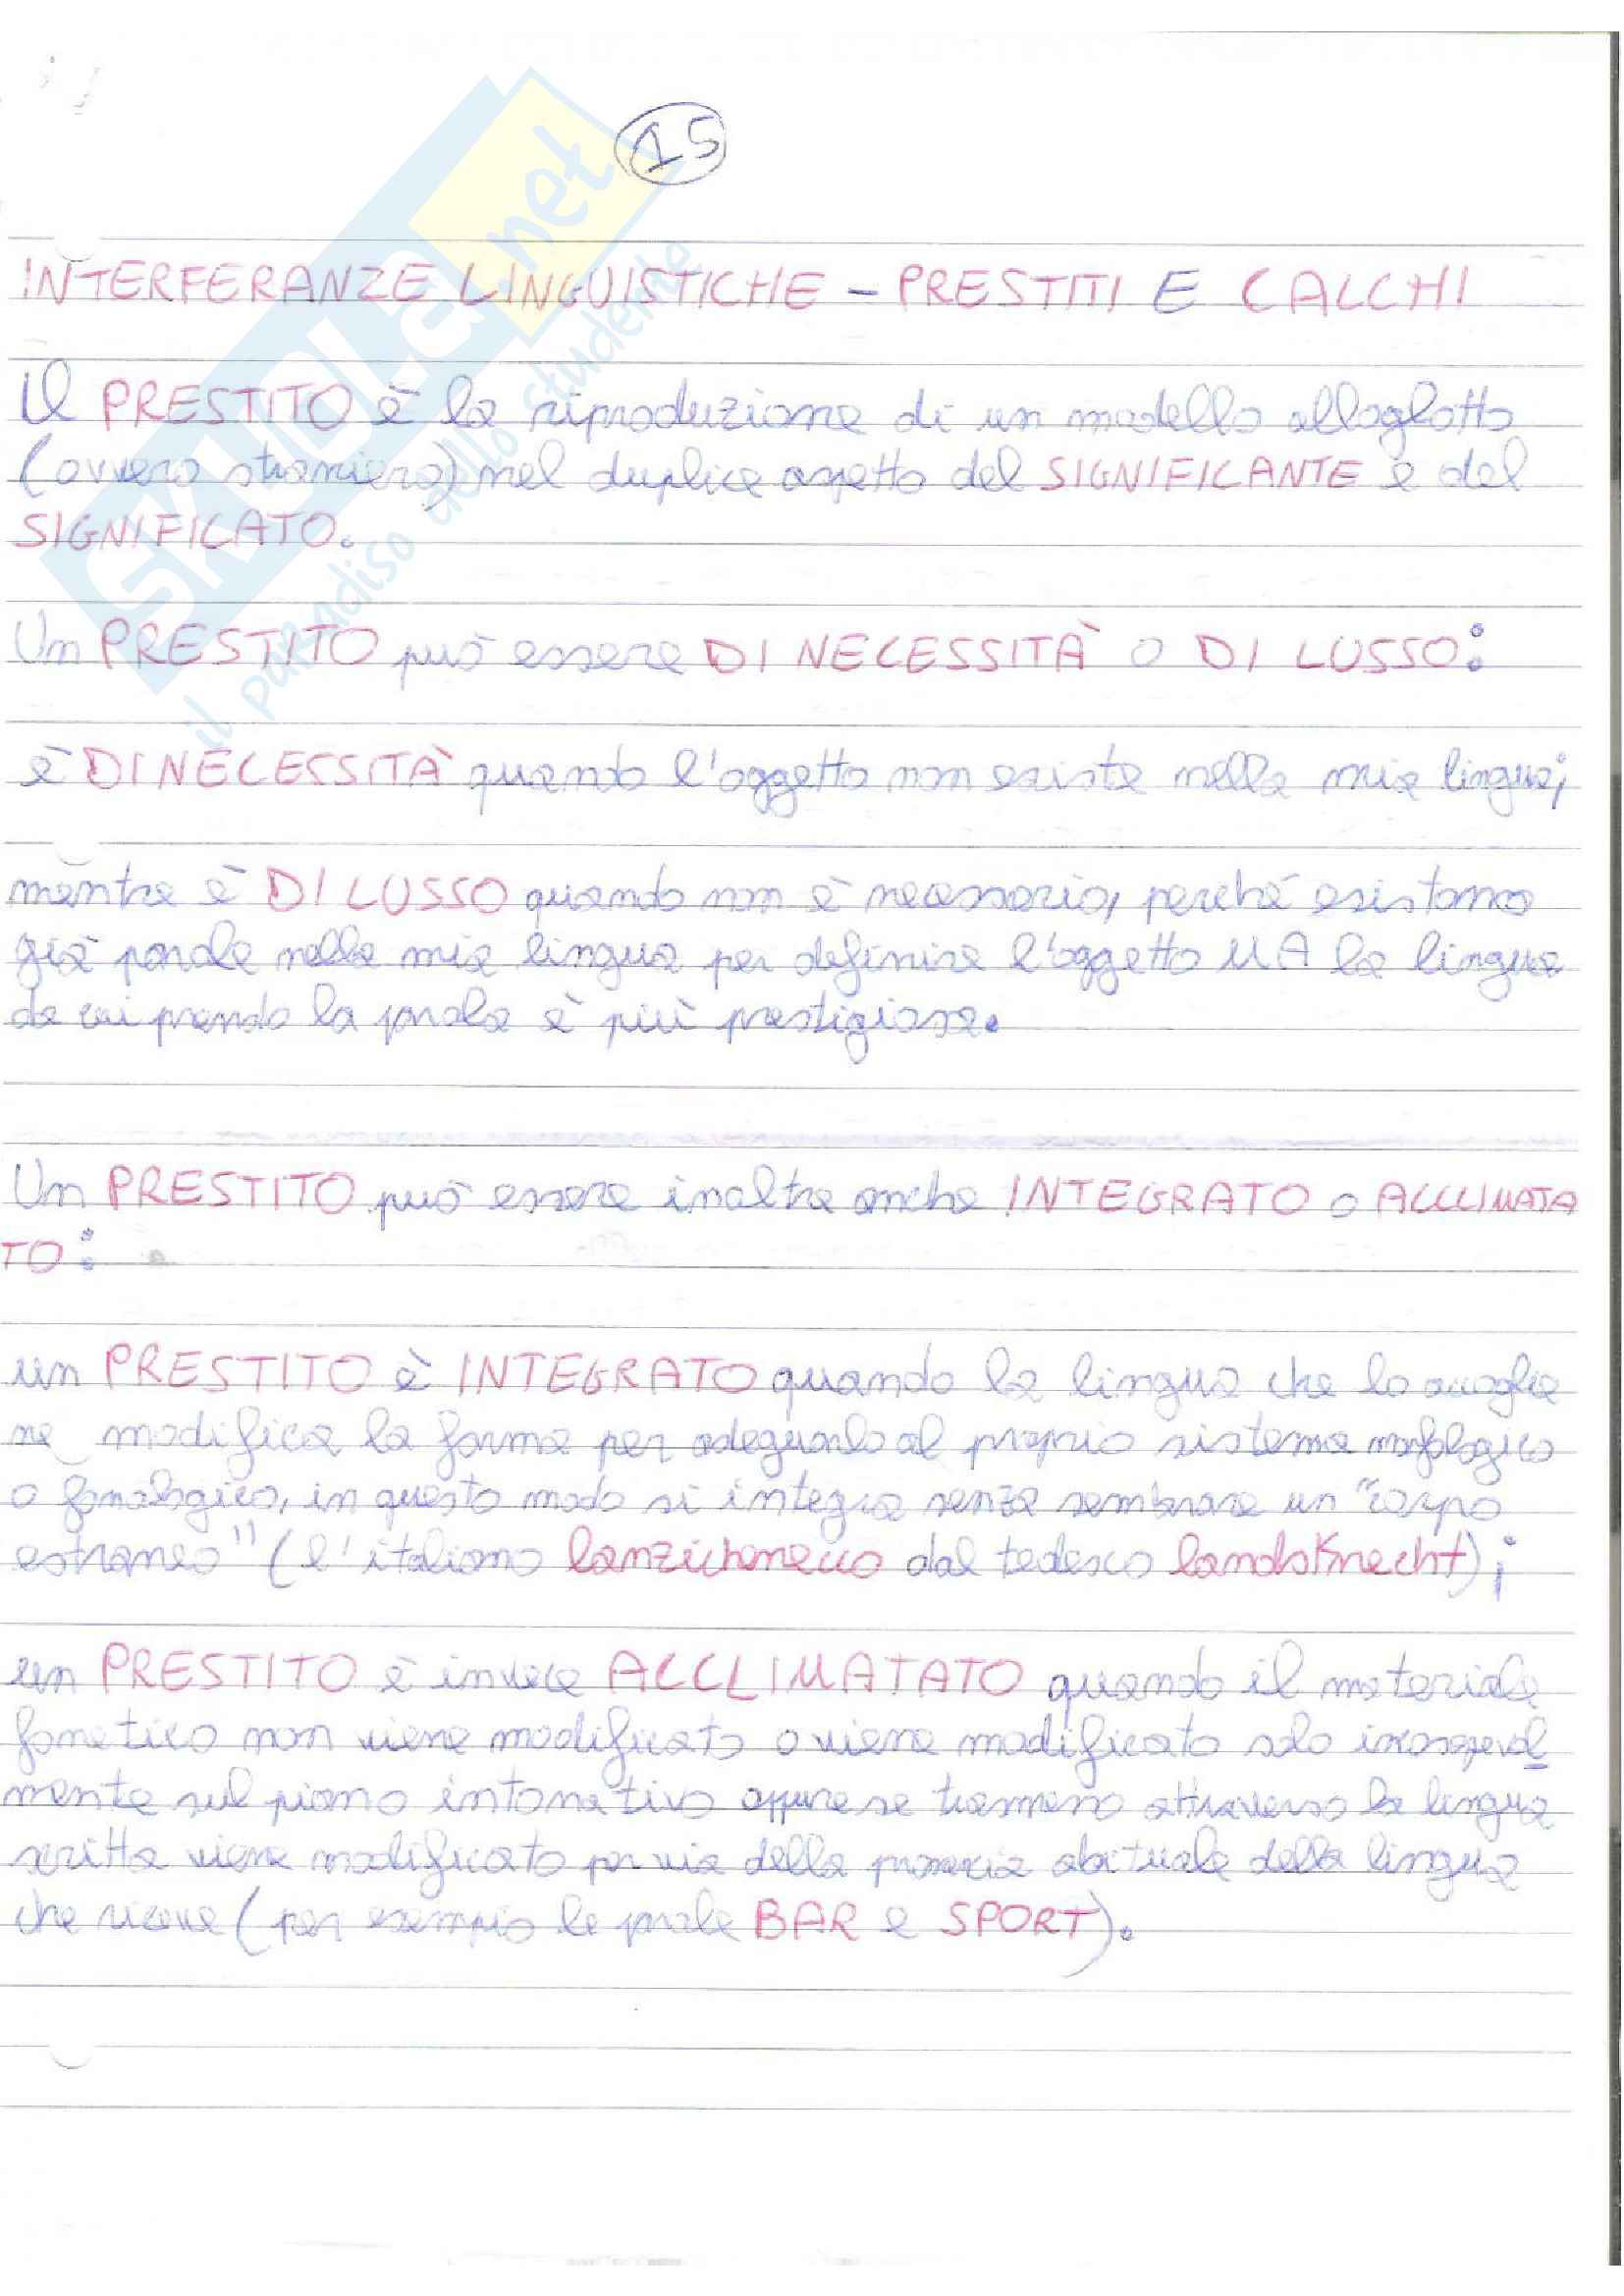 15
INTERFERANZE LINGUISTICHE - PRESTITI E CALCHI
Il PRESTITO è la riproduzione di un modello alloglotto
(ovvero straniero) nel duplice aspetto del SIGNIFICANTE e del
SIGNIFICATO.
Un PRESTITO può essere DI NECESSITÀ o DI LUSSO:
è DI NECESSITÀ quando l'oggetto non esiste nella mia lingua;
mentre è DI LUSSO quando non è necessario, perché esistono
già parole nella mia lingua per definire l'oggetto MA la lingua
da cui prendo la parola è più prestigiosa.
Un PRESTITO può essere inoltre anche INTEGRATO o ACCLIMATA
TO:
un PRESTITO è INTEGRATO quando la lingua che lo accoglie
ne modifica la forma per adeguarlo al proprio sistema morfologico
o fonologico, in questo modo si integra senza sembrare un "corpo
estraneo" (l'italiano lanzichenecco dal tedesco landsKnecht);
un PRESTITO è invece ACCLIMATATO quando il materiale
fonetico non viene modificato o viene modificato solo inconsapevol
mente sul piano intonativo oppure se trasmesso attraverso la lingua
scritta viene modificato per via della pronuncia abituale della lingua
che riceve (per esempio le parole BAR e SPORT).
SKUOLA.net
il paradiso dello studente